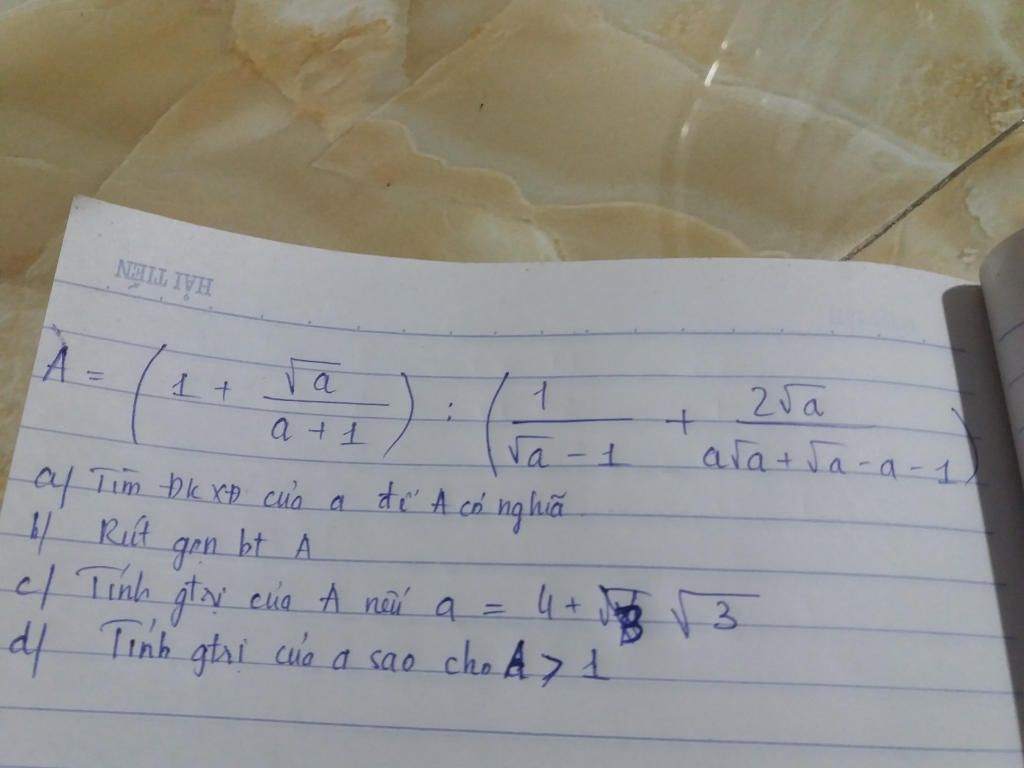 HẢI TIẾN
A = ( 1 + √a / (a + 1) ) : ( 1 / (√a - 1) + 2√a / (a√a + √a - a - 1) )
a/ Tìm ĐKXĐ của a để A có nghĩã
b/ Rút gọn bt A
c/ Tính gtrị của A nếu a = 4 + √3
d/ Tính gtrị của a sao cho A > 1